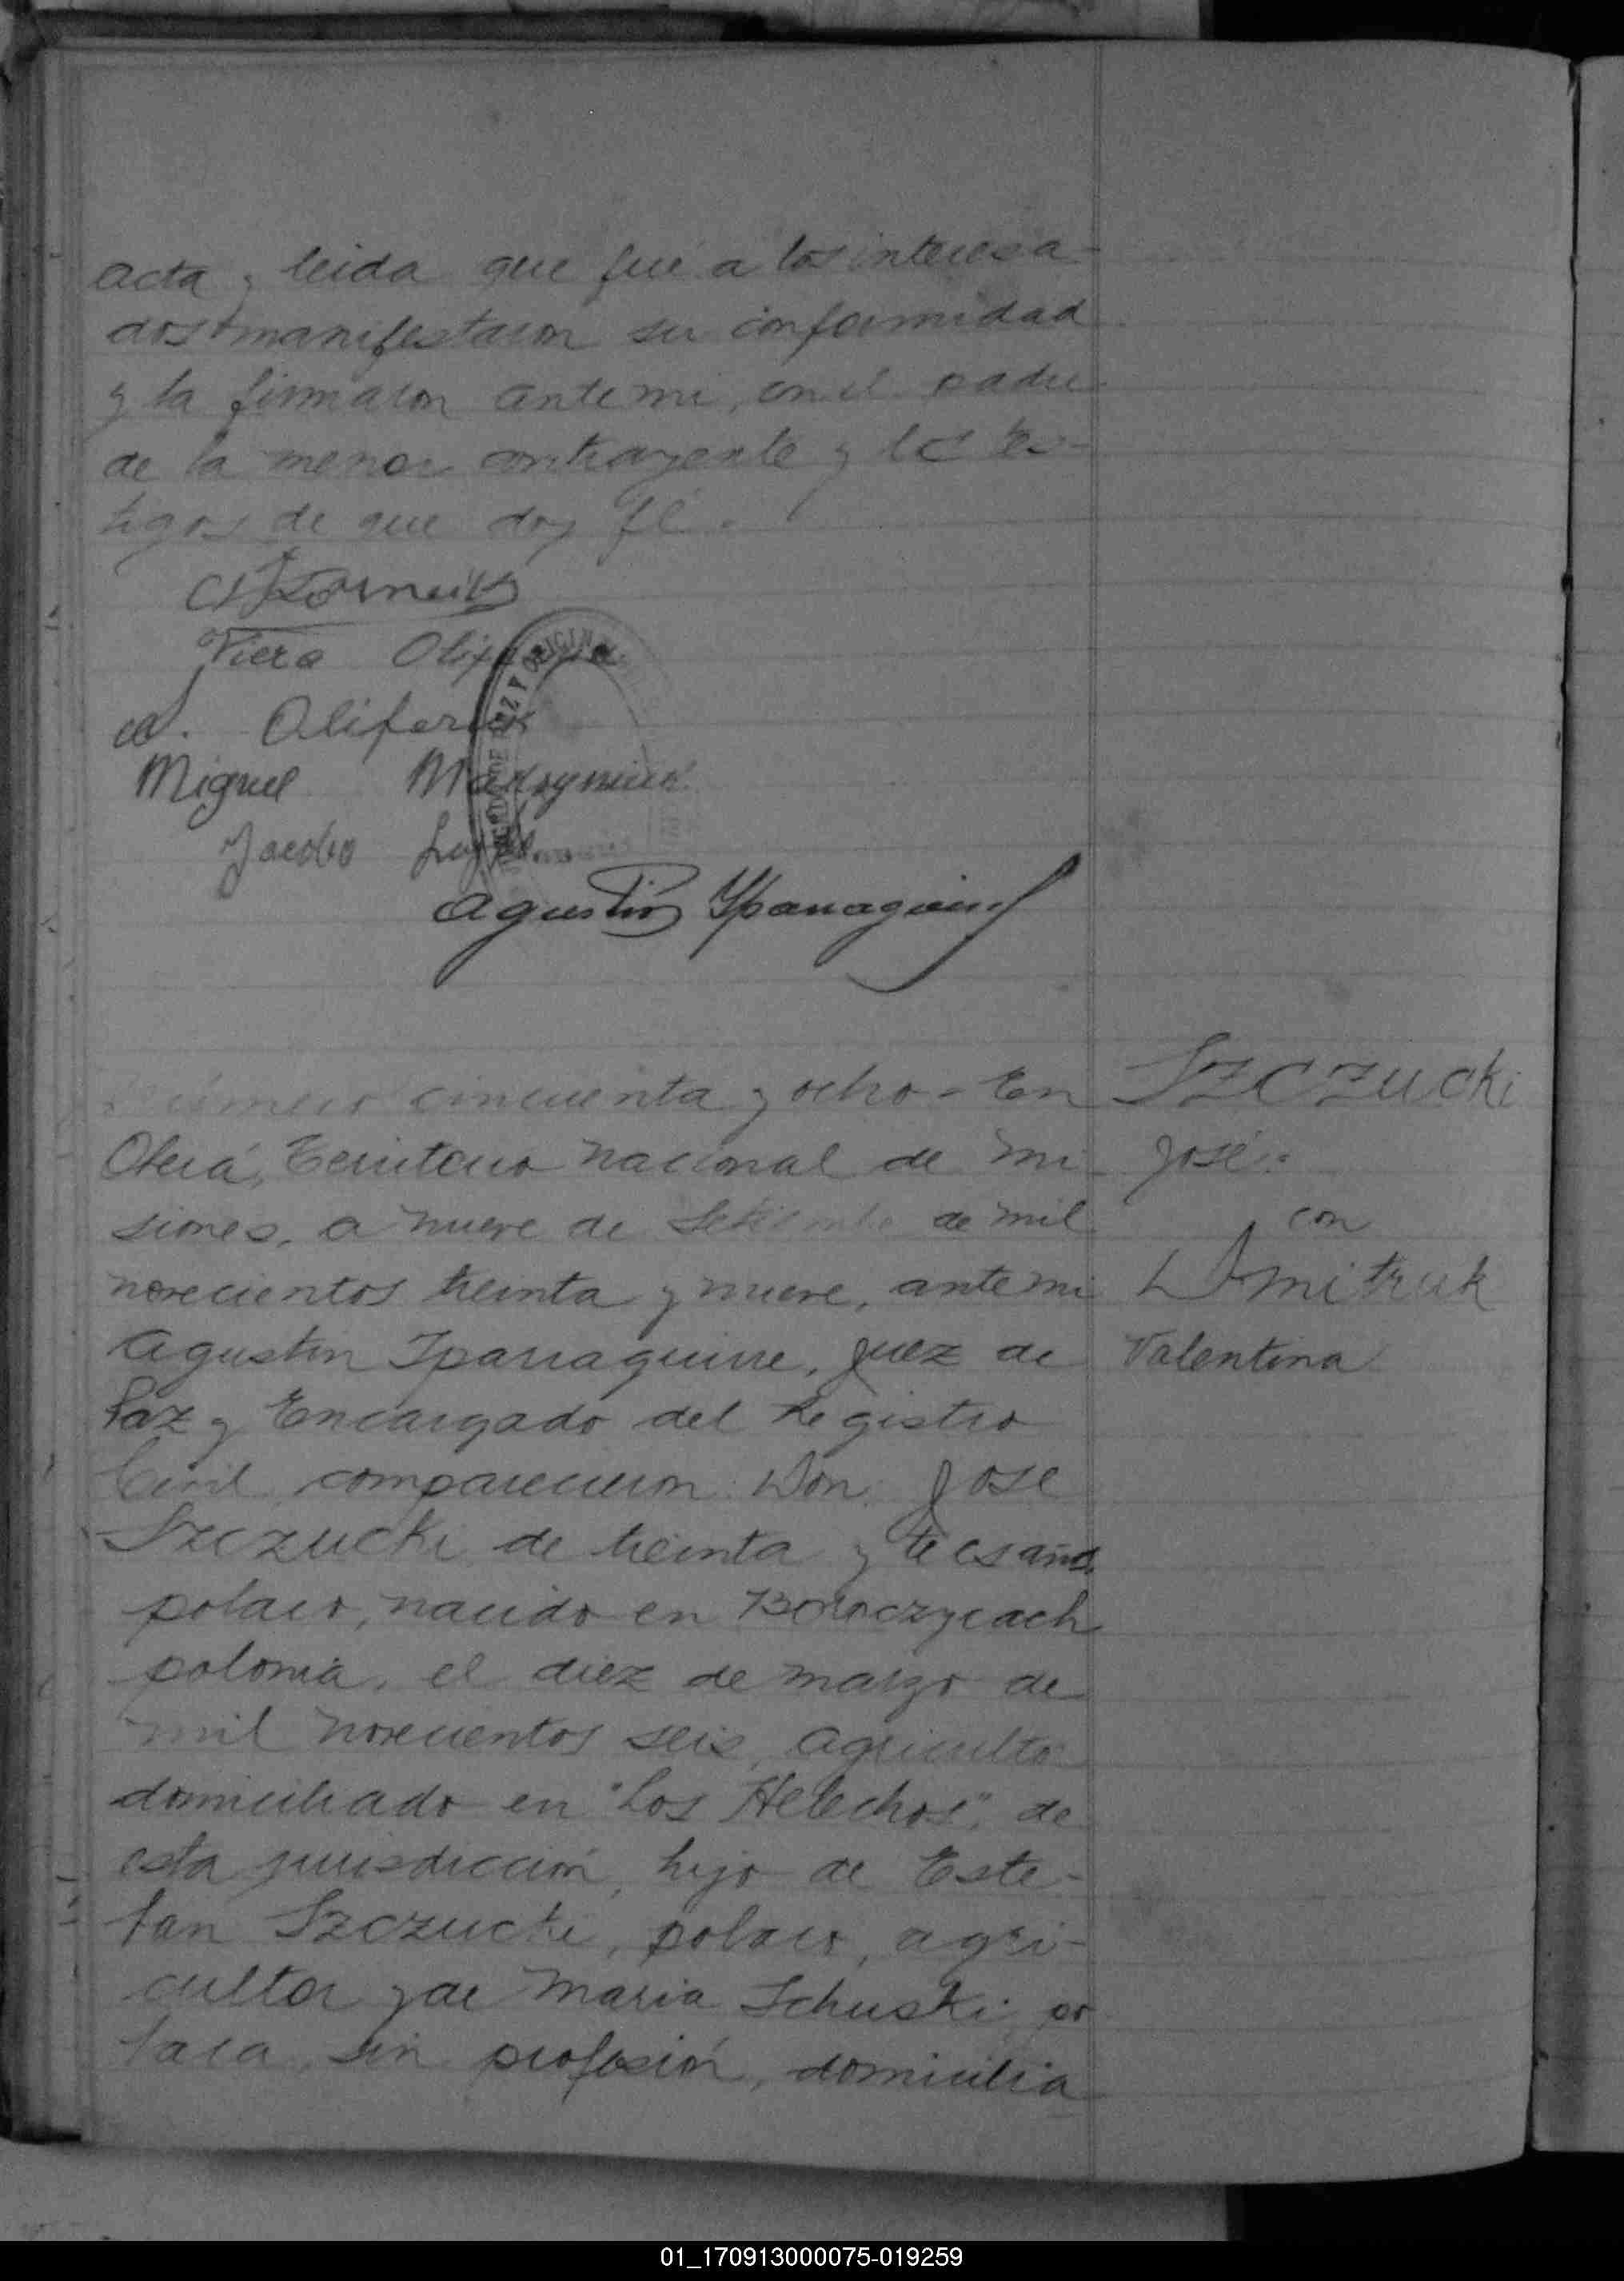 acta y leida que fué a los interesa-
dos manifestaron su conformidad
y la firmaron ante mi, con el padre
de la menor contrayente y los tes-
tigos de que doy fé.
Viera
Oliferuk
Miguel
Jacobo
Agustin Yparraguirre
Número cincuenta y ocho - En
Oberá, Territorio Nacional de Mi-
siones, a nueve de Setiembre de mil
novecientos treinta y nueve, ante mi
Agustin Iparraguirre, Juez de
Paz y Encargado del Registro
Civil comparecieron: Don José
Szczucki de treinta y tres años,
polaco, nacido en
polonia, el diez de marzo de
mil novecientos seis, agricultor
domiciliado en "Los Helechos", de
esta jurisdicción, hijo de Este-
fan Szczucki, polaco, agri-
cultor y de Maria Schuski, po
laca, sin profesión, domicilia
Szczucki
José.
con
Dmitruk
Valentina
01_170913000075-019259